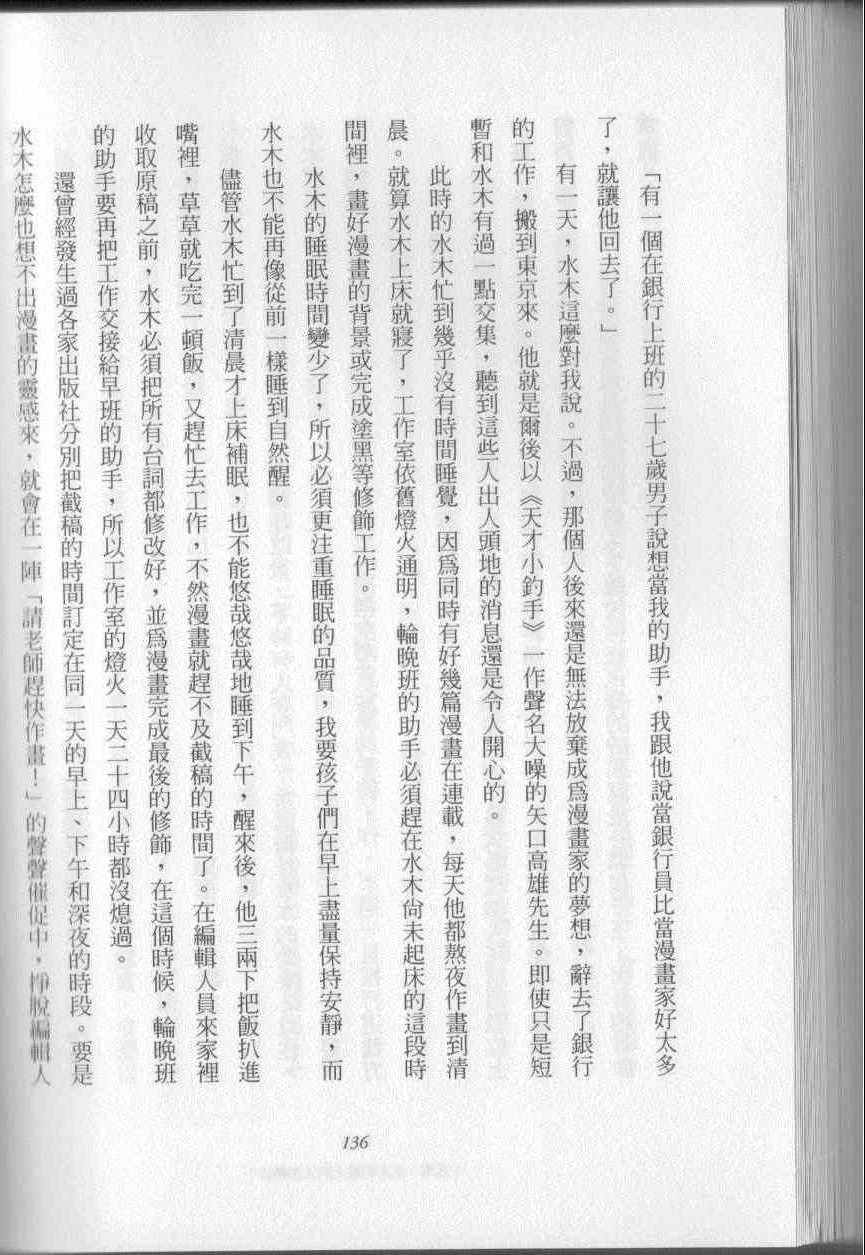 「有一個在銀行上班的二十七歲男子說想當我的助手，我跟他說當銀行員比當漫畫家好太多
了，就讓他回去了。」
有一天，水木這麼對我說。不過，那個人後來還是無法放棄成爲漫畫家的夢想，辭去了銀行
的工作，搬到東京來。他就是爾後以《天才小釣手》一作聲名大噪的矢口高雄先生。即使只是短
暫和水木有過一點交集，聽到這些人出人頭地的消息還是令人開心的。
此時的水木忙到幾乎沒有時間睡覺，因爲同時有好幾篇漫畫在連載，每天他都熬夜作畫到清
晨。就算水木上床就寢了，工作室依舊燈火通明，輪晚班的助手必須趕在水木尙未起床的這段時
間裡，畫好漫畫的背景或完成塗黑等修飾工作。
水木的睡眠時間變少了，所以必須更注重睡眠的品質，我要孩子們在早上盡量保持安靜，而
水木也不能再像從前一樣睡到自然醒。
儘管水木忙到了清晨才上床補眠，也不能悠哉悠哉地睡到下午，醒來後，他三兩下把飯扒進
嘴裡，草草就吃完一頓飯，又趕忙去工作，不然漫畫就趕不及截稿的時間了。在編輯人員來家裡
收取原稿之前，水木必須把所有台詞都修改好，並爲漫畫完成最後的修飾，在這個時候，輪晚班
的助手要再把工作交接給早班的助手，所以工作室的燈火一天二十四小時都沒熄過。
還曾經發生過各家出版社分別把截稿的時間訂定在同一天的早上、下午和深夜的時段。要是
水木怎麼也想不出漫畫的靈感來，就會在一陣「請老師趕快作畫！」的聲聲催促中，掙脫編輯人
136